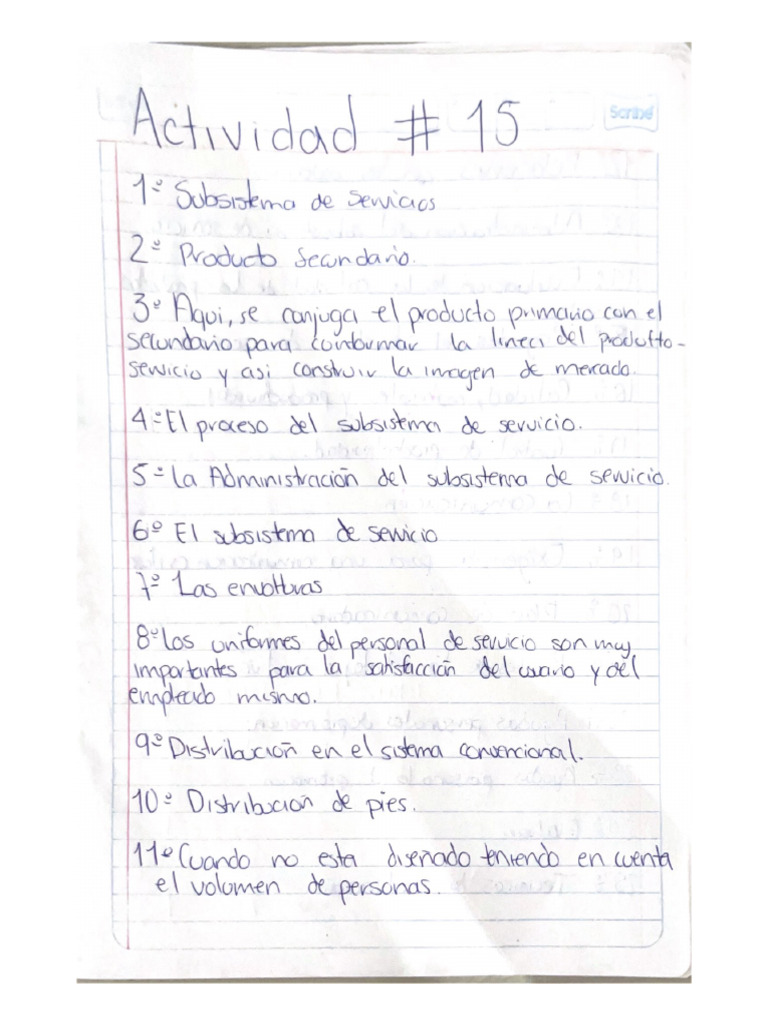 Actividad # 15
Scribe
1º Subsistema de servicios
2º Producto Secundario.
3º Aqui, se conjuga el producto primario con el
secundario para conformar la linea del producto-
servicio y asi construir la imagen de mercado.
4º El proceso del subsistema de servicio.
5º La Administración del subsistema de servicio.
6º El subsistema de servicio
7º Las envolturas
8º Los uniformes del personal de servicio son muy
importantes para la satisfacción del usuario y del
empleado mismo.
9º Distribución en el sistema convencional.
10º Distribución de pies.
11º Cuando no esta diseñado teniendo en cuenta
el volumen de personas.